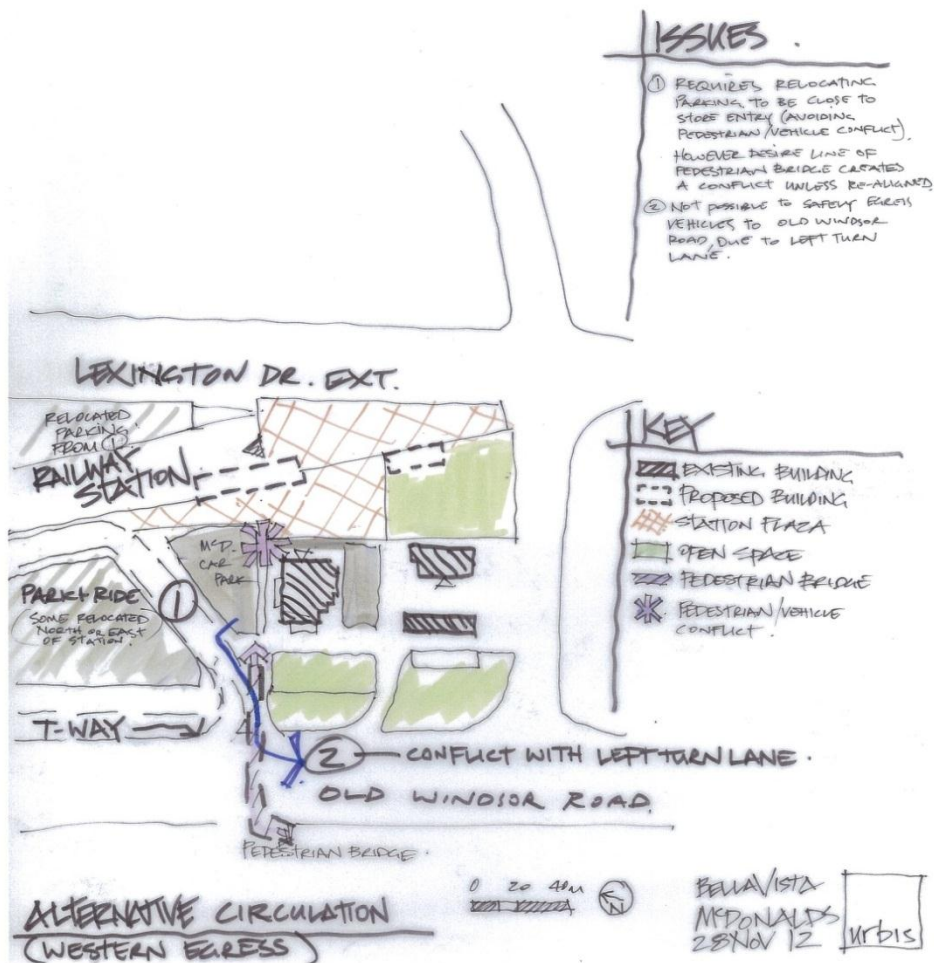 ISSUES.
① REQUIRES RELOCATING
PARKING TO BE CLOSE TO
STORE ENTRY (AVOIDING
PEDESTRIAN/VEHICLE CONFLICT).
HOWEVER DESIRE LINE OF
PEDESTRIAN BRIDGE CREATES
A CONFLICT UNLESS RE-ALIGNED.
② NOT POSSIBLE TO SAFELY EGRESS
VEHICLES TO OLD WINDSOR
ROAD, DUE TO LEFT TURN
LANE.
LEXINGTON DR. EXT.
RELOCATED
PARKING
FROM ①.
RAILWAY
STATION
McD.
CAR
PARK
PARK + RIDE
SOME RELOCATED
NORTH OR EAST
OF STATION.
①
T-WAY
② CONFLICT WITH LEFT TURN LANE.
OLD WINDSOR ROAD.
PEDESTRIAN BRIDGE.
KEY
EXISTING BUILDING
PROPOSED BUILDING
STATION PLAZA
OPEN SPACE
PEDESTRIAN BRIDGE
PEDESTRIAN/VEHICLE
CONFLICT.
ALTERNATIVE CIRCULATION
(WESTERN EGRESS)
0 20 40m
BELLA VISTA
McDONALDS
28 NOV 12
urbis